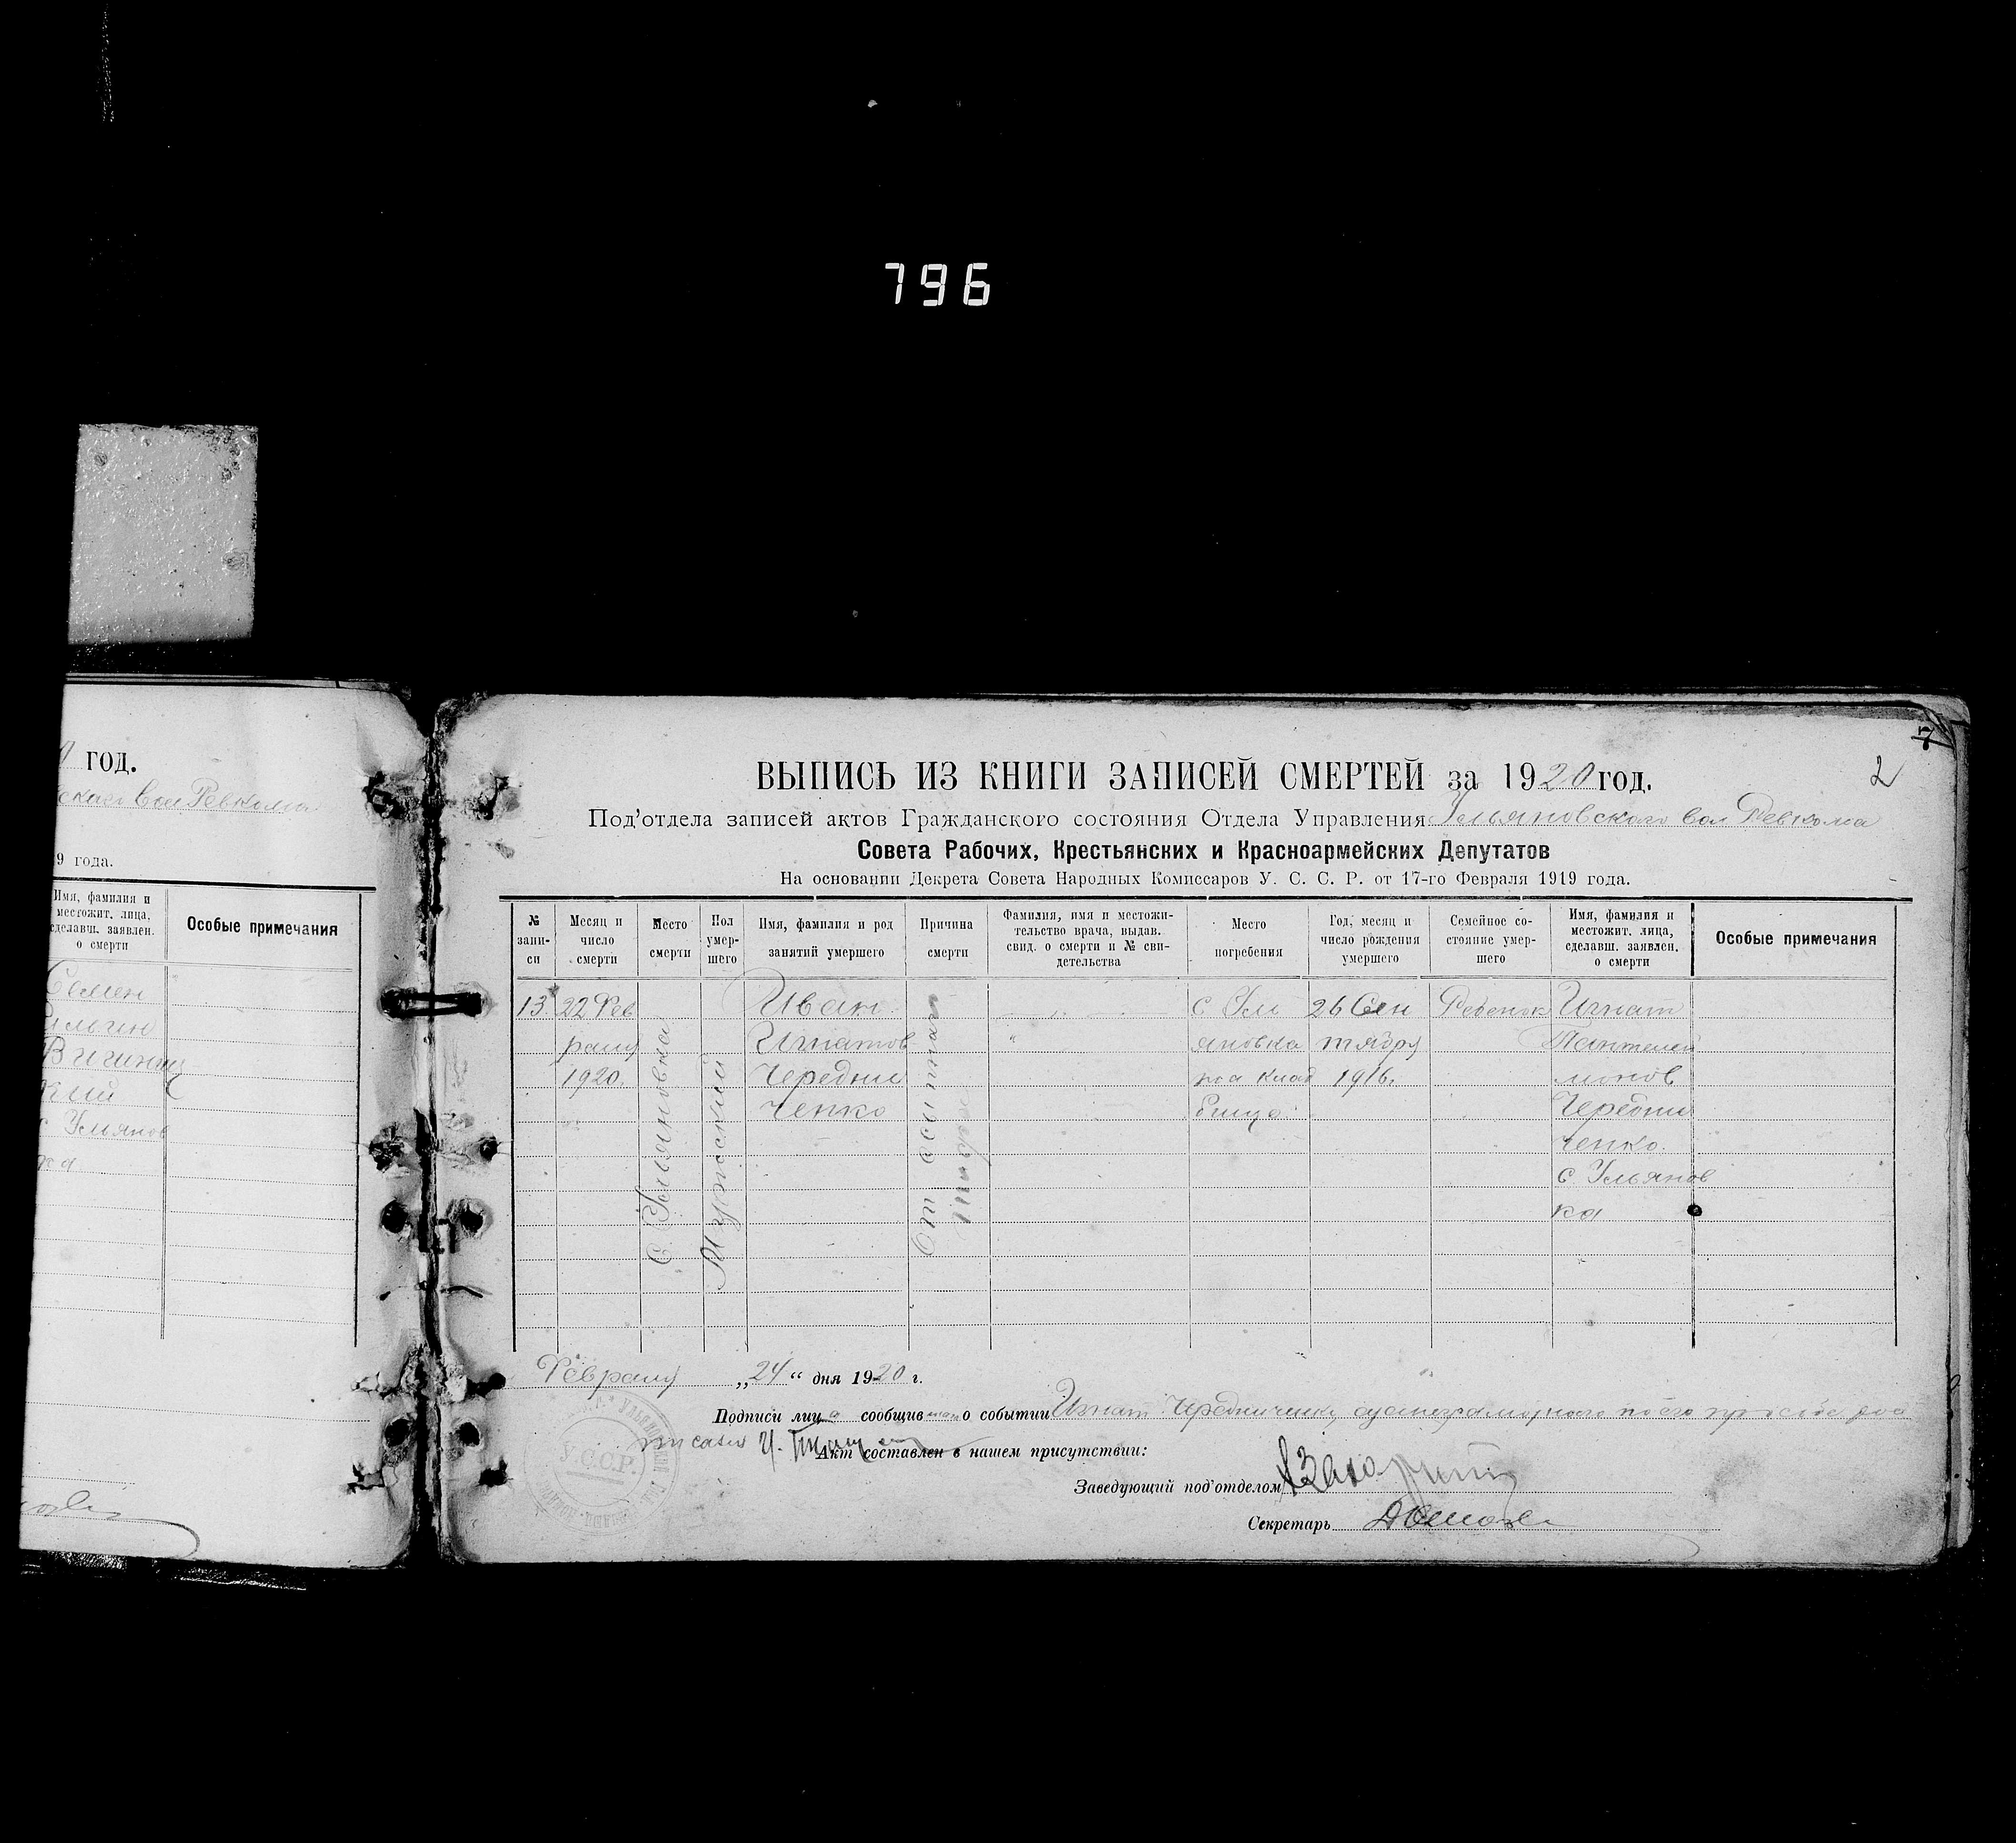 796
9 год.
ского вол Ревкома
9 года.
Имя, фамилия и
местожит. лица,
сделавш. заявлен.
о смерти
Особые примечания
Семен
с Ульянов
ка
7
2
ВЫПИСЬ ИЗ КНИГИ ЗАПИСЕЙ СМЕРТЕЙ за 1920 год.
Под'отдела записей актов Гражданского состояния Отдела Управления Ульяновского вол Ревкома
Совета Рабочих, Крестьянских и Красноармейских Депутатов
На основании Декрета Совета Народных Комиссаров У. С. С. Р. от 17-го Февраля 1919 года.
№
запи-
си
Месяц и
число
смерти
Место
смерти
Пол
умер-
шего
Имя, фамилия и род
занятий умершего
Причина
смерти
Фамилия, имя и местожи-
тельство врача, выдав.
свид. о смерти и № сви-
детельства
Место
погребения
Год, месяц и
число рождения
умершего
Семейное со-
стояние умер-
шего
Имя, фамилия и
местожит. лица,
сделавш. заявлен.
о смерти
Особые примечания
13
22 Фев
раля
1920.
С. Ульяновка
Мужский
Иван
Игнатов
Чередни
ченко
От сыпного
тифа
с Уль
яновка
на клад
бища
26 Сен
тября
1916.
Ребенок
Игнат
Пантелей
монов
Чередни
ченко.
с Ульянов
ка
Февраля „24“ дня 1920 г.
Подписи лица сообщив о событии Игнат Чередниченко, а его
писался
Акт составлен в нашем присутствии:
Заведующий под'отделом
Секретарь
У.С.С.Р.